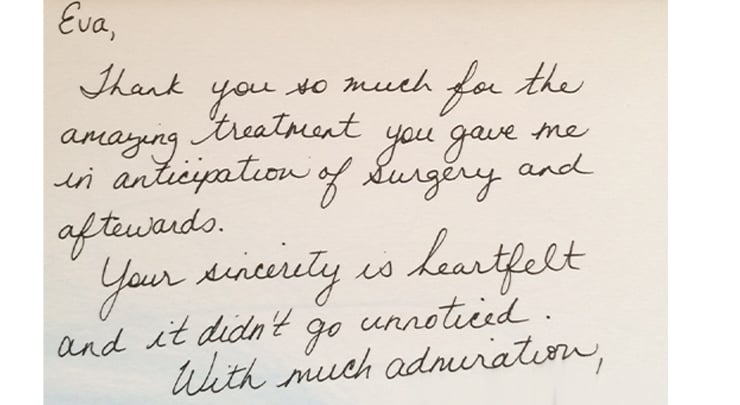 Eva,
Thank you so much for the
amazing treatment you gave me
in anticipation of surgery and
aftewards.
Your sincerity is heartfelt
and it didn't go unnoticed.
With much admiration,